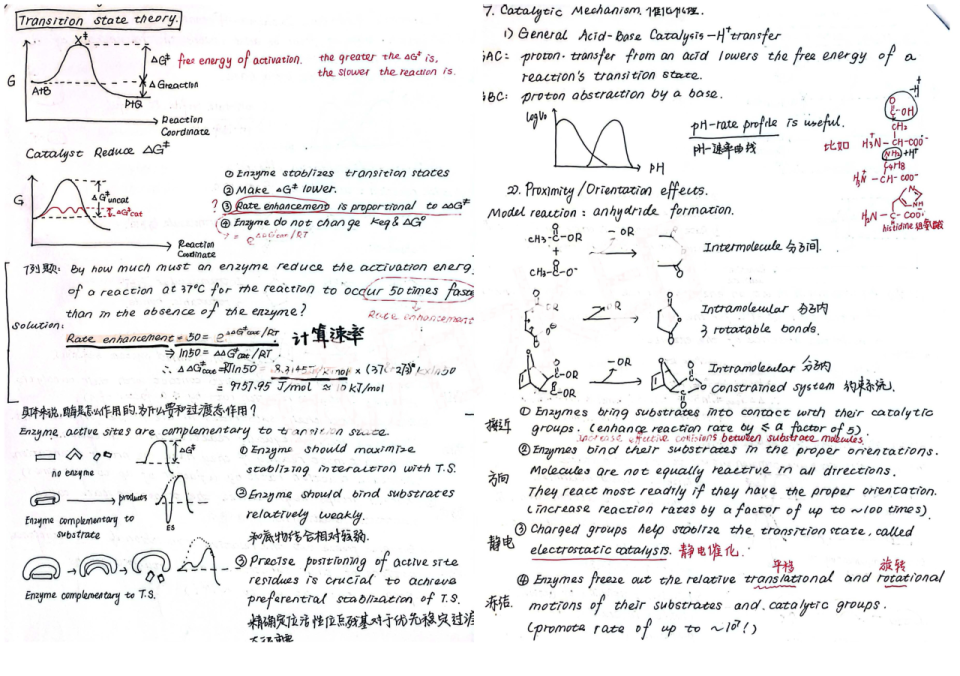 Transition state theory.
X‡
ΔG‡ free energy of activation. the greater the ΔG‡ is,
the slower the reaction is.
G
A+B
ΔGreaction
P+Q
Reaction
Coordinate
Catalyst Reduce ΔG‡
G
ΔG‡uncat
ΔG‡cat
Reaction
Coordinate
① Enzyme stablizes transition states
② Make ΔG‡ lower.
? ③ Rate enhancement is proportional to ΔΔG‡
④ Enzyme do not change Keq & ΔG°
例题: By how much must an enzyme reduce the activation energ
of a reaction at 37°C for the reaction to occur 50 times faste
than in the absence of the enzyme?
Rate enhancement
Solution:
Rate enhancement = 50 = e^ΔΔG‡cat/RT. 计算速率
⇒ ln50 = ΔΔG‡cat/RT.
∴ ΔΔG‡cat = RTln50 = 8.3145 × (37+273)
= 9757.95 J/mol ≈ 10 kJ/mol
具体来说,酶是怎么作用的,为什么要和过渡态作用?
Enzyme active sites are complementary to transition state.
no enzyme
ΔG‡
products
Enzyme complementary to
substrate
ES
Enzyme complementary to T.S.
① Enzyme should maximize
stablizing interaction with T.S.
② Enzyme should bind substrates
relatively weakly.
和底物结合相对较弱.
③ Precise positioning of active site
residues is crucial to achieve
preferential stablization of T.S.
精确定位活性位点残基对于优先稳定过渡
7. Catalytic Mechanism. 催化机理.
1) General Acid-Base Catalysis – H⁺ transfer
AC: proton-transfer from an acid lowers the free energy of a
reaction's transition state.
BC: proton abstraction by a base.
log V₀
pH
pH-rate profile is useful.
pH-速率曲线
比如
-H⁺
O
C-OH
CH₂
H₃N⁺-CH-COO⁻
NH₂ +H⁺
C4H8
H₃N⁺-CH-COO⁻
N
NH
H₃N⁺-C-COO⁻
histidine 组氨酸
2). Proximity/Orientation effects.
Model reaction: anhydride formation.
CH₃-C-OR
+
CH₃-C-O⁻
-OR
Intermolecule 分子间.
-OR
Intramolecular 分子内
3 rotatable bonds.
C-OR
C-OR
-OR
Intramolecular 分子内
constrained system 约束系统.
接近 ① Enzymes bring substrates into contact with their catalytic
groups. (enhance reaction rate by ≤ a factor of 5).
increase effective collisions between substrate molecules.
方向 ② Enzymes bind their substrates in the proper orientations.
Molecules are not equally reactive in all directions.
They react most readily if they have the proper orientation.
(increase reaction rates by a factor of up to ~100 times).
静电 ③ Charged groups help stablize the transition state, called
electrostatic catalysis. 静电催化.
平移 旋转
冻结. ④ Enzymes freeze out the relative translational and rotational
motions of their substrates and catalytic groups.
(promote rate of up to ~10⁷!)